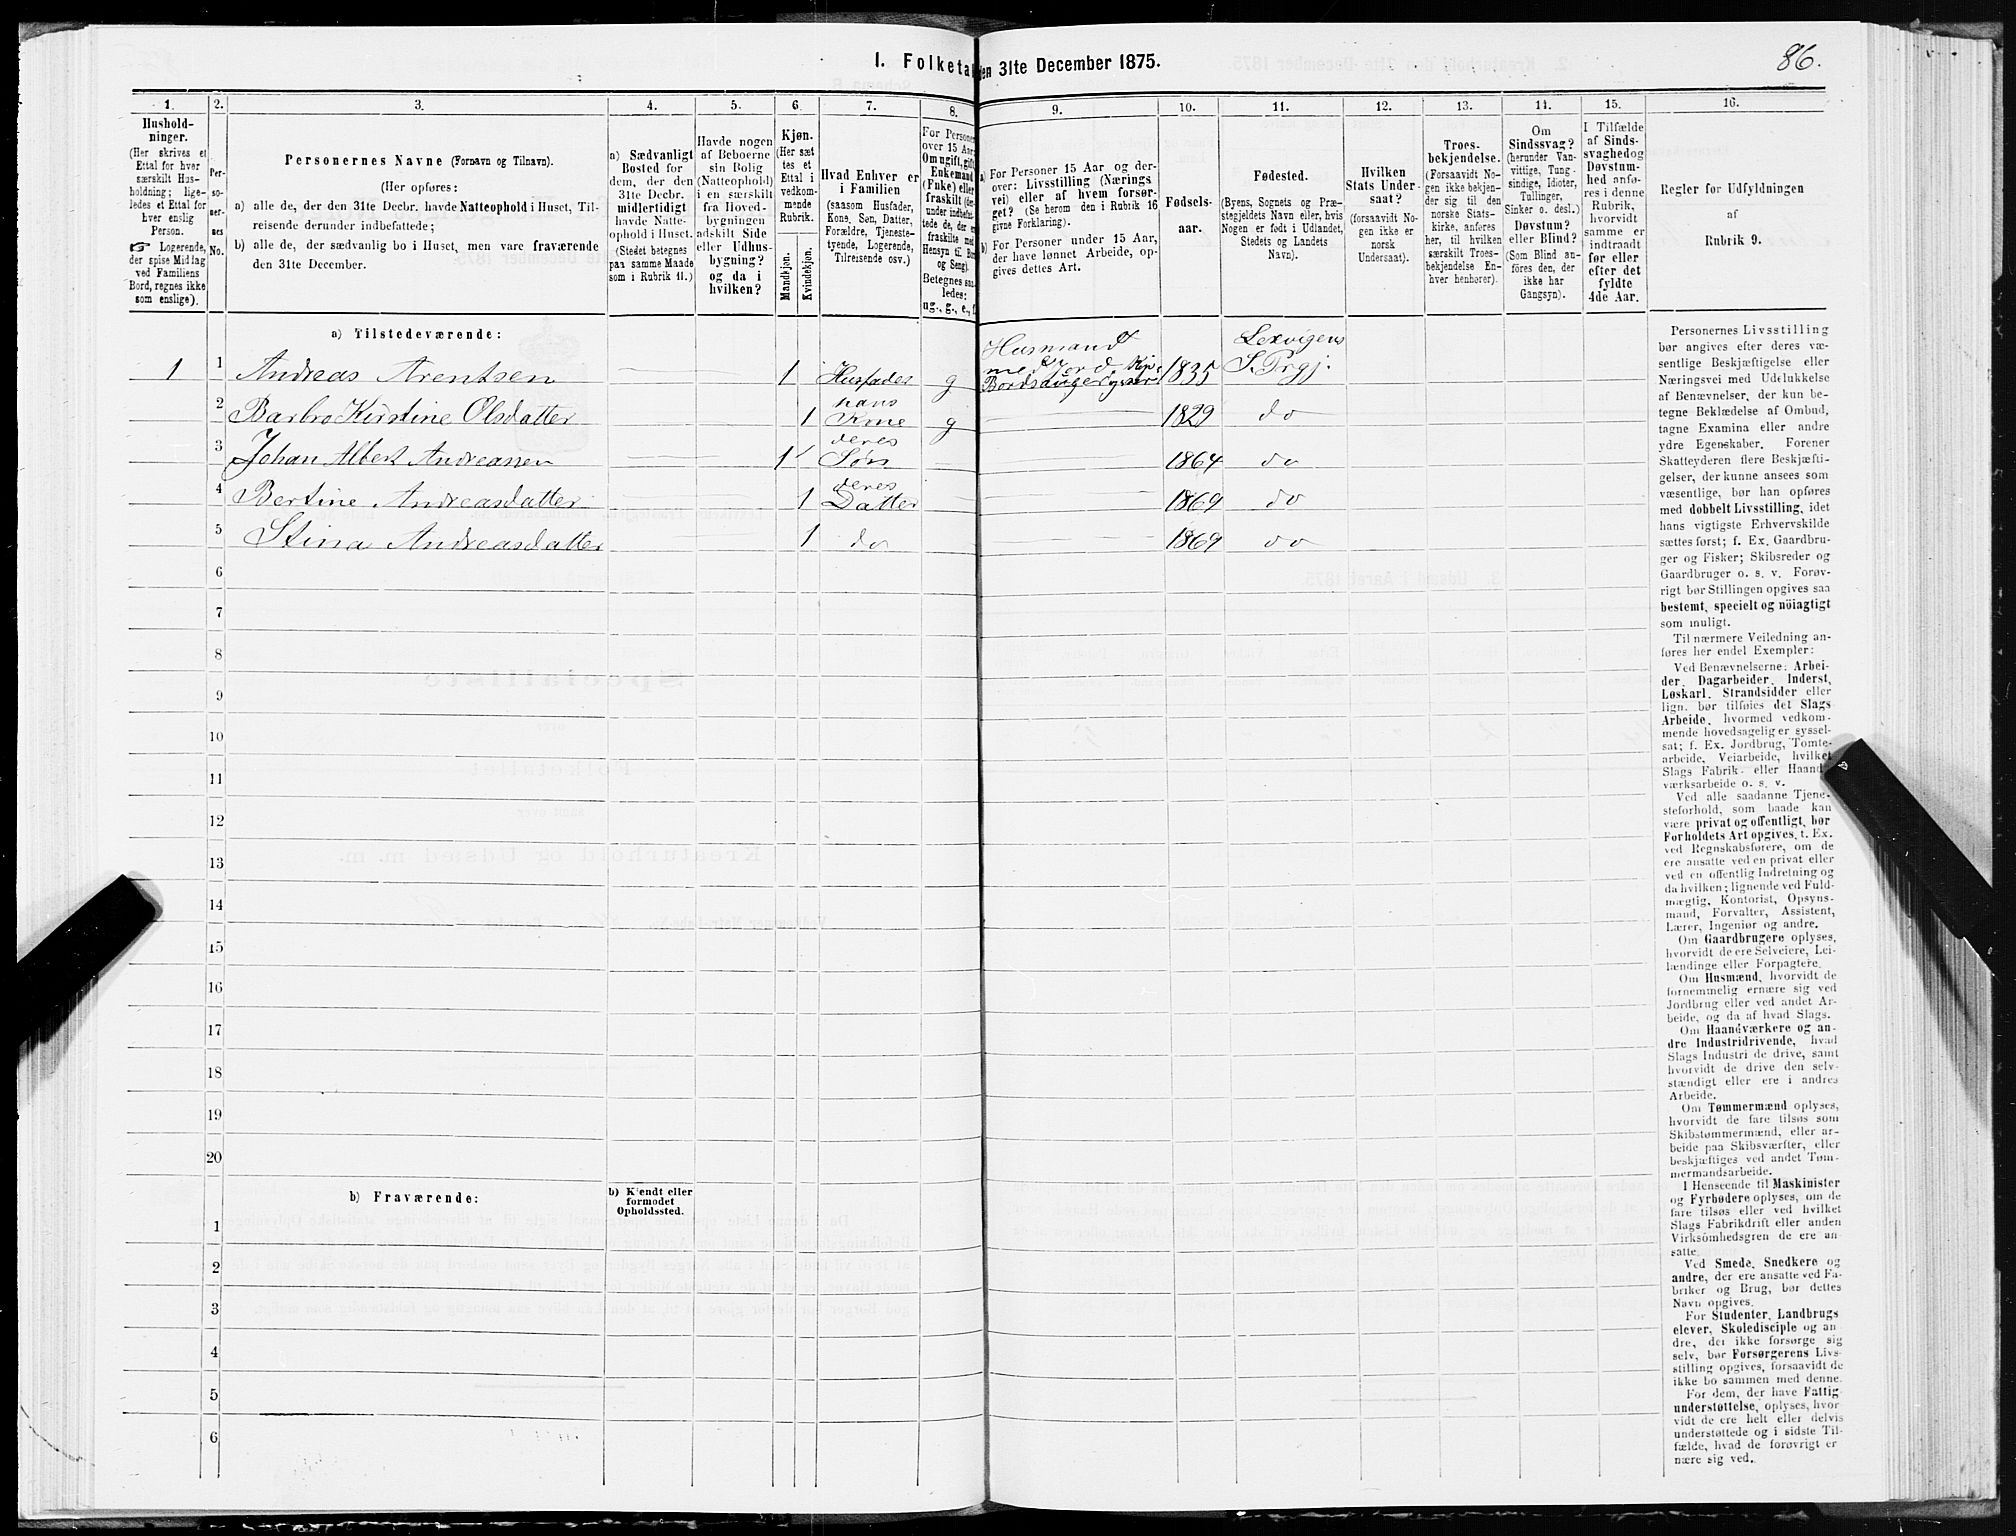 86.
I. Folketal
den 31te December 1875.
1.
Hushold-
ninger.
(Her skrives et
Ettal for hver
særskilt Hus-
holdning; lige-
ledes et Ettal for
hver enslig
Person.
☞ Logerende,
der spise Middag
ved Familiens
Bord, regnes ikke
som enslige).
2.
Per-
so-
ner-
nes
No.
3.
Personernes Navne (Fornavn og Tilnavn).
(Her opføres:
a) alle de, der den 31te Decbr. havde Natteophold i Huset, Til-
reisende derunder indbefattede;
b) alle de, der sædvanlig bo i Huset, men vare fraværende
den 31te December.
4.
a) Sædvanligt
Bosted for
dem, der den
31te Decbr.
midlertidigt
havde Natte-
ophold i Huset.
(Stedet betegnes
paa samme Maade
som i Rubrik 11.)
5.
Havde nogen
af Beboerne
sin Bolig
(Natteophold)
i en særskilt
fra Hoved-
bygningen
adskilt Side
eller Udhus-
bygning?
og da i
hvilken?
6.
Kjøn.
(Her sæt-
tes et
Ettal i
vedkom-
mende
Rubrik.
Mandkjøn.
Kvindekjøn.
7.
Hvad Enhver er
i Familien
(saasom Husfader,
Kone, Søn, Datter,
Forældre, Tjeneste-
tyende, Logerende,
Tilreisende osv.)
8.
For Personer
over 15 Aar
Om ugift, gift,
Enkemand
(Enke) eller
fraskilt
Betegnes saa-
ledes:
ug., g., e., f.
9.
a) For Personer 15 Aar og der-
over: Livsstilling (Nærings-
vei) eller af hvem forsør-
get? (Se herom den i Rubrik 16
givne Forklaring).
b) For Personer under 15 Aar,
der have lønnet Arbeide, op-
gives dettes Art.
10.
Fødsels-
aar.
11.
Fødested.
(Byens, Sognets og Præ-
stegjeldets Navn eller, hvis
Nogen er født i Udlandet,
Stedets og Landets
Navn).
12.
Hvilken
Stats Under-
saat?
(forsaavidt No-
gen ikke er
norsk
Undersaat).
13.
Troes-
bekjendelse.
(Forsaavidt No-
gen ikke bekjen-
der sig til den
norske Stats-
kirke, anføres
her, til hvilken
særskilt Troes-
bekjendelse En-
hver henhører).
14.
Om
Sindssvag?
(herunder Van-
vittige, Tung-
sindige, Idioter,
Tullinger,
Sinker o. desl.)
Døvstum?
eller Blind?
(Som Blind an-
føres den, der
ikke har
Gangsyn).
15.
I Tilfælde
af Sinds-
svaghed og
Døvstum-
hed anfø-
res i denne
Rubrik,
hvorvidt
samme er
indtraadt
før eller
efter det
fyldte
4de Aar.
16.
Regler for Udfyldningen
af
Rubrik 9.
a) Tilstedeværende:
1 1 Andreas Arentsen — 1 Husfader g Husmand med Jord 1835 Lexvigens S. Prgj.
2 Barbro Kirstine Olsdatter — 1 hans Kone g — 1829 do
3 Johan Albert Andreassen — 1 deres Søn — — 1864 do
4 Bertine Andreasdatter — 1 deres Datter — — 1869 do
5 Stina Andreasdatter — 1 do — — 1869 do
6
7
8
9
10
11
12
13
14
15
16
17
18
19
20
b) Fraværende:
b) Kjendt eller
formodet
Opholdssted.
1
2
3
4
5
6
Personernes Livsstilling
bør angives efter deres væ-
sentlige Beskjæftigelse eller
Næringsvei med Udelukkelse
af Benævnelser, der kun be-
tegne Beklædelse af Ombud,
tagne Examina eller andre
ydre Egenskaber. Forener
Skatteyderen flere Beskjæfti-
gelser, der kunne ansees som
væsentlige, bør han opføres
med dobbelt Livsstilling, idet
hans vigtigste Erhvervskilde
sættes først; f. Ex. Gaardbru-
ger og Fisker; Skibsreder og
Gaardbruger o. s. v. Forøv-
rigt bør Stillingen opgives saa
bestemt, specielt og nöiagtigt
som muligt.
Til nærmere Veiledning an-
føres her endel Exempler:
Ved Benævnelserne: Arbei-
der, Dagarbeider, Inderst,
Løskarl, Strandsidder eller
lign. bør tilføies det Slags
Arbeide, hvormed vedkom-
mende hovedsagelig er syssel-
sat; f. Ex. Jordbrug, Tomte-
arbeide, Veiarbeide, hvilket
Slags Fabrik- eller Haand-
værksarbeide o. s. v.
Ved alle saadanne Tjene-
steforhold, som baade kan
være privat og offentligt, bør
Forholdets Art opgives, t. Ex.
ved Regnskabsførere, om de
ere ansatte ved en privat eller
ved en offentlig Indretning og
da hvilken; lignende ved Fuld-
mægtig, Kontorist, Opsyns-
mand, Forvalter, Assistent,
Lærer, Ingeniør og andre.
Om Gaardbrugere oplyses,
hvorvidt de ere Selveiere, Lei-
lændinge eller Forpagtere.
Om Husmænd, hvorvidt de
fornemmelig ernære sig ved
Jordbrug eller ved andet Ar-
beide, og da af hvad Slags.
Om Haandværkere og an-
dre Industridrivende, hvad
Slags Industri de drive, samt
hvorvidt de drive den selv-
stændigt eller ere i andres
Arbeide.
Om Tømmermænd oplyses,
hvorvidt de fare tilsøs som
Skibstømmermænd, eller ar-
beide paa Skibsværfter, eller
beskjæftiges ved andet Tøm-
mermandsarbeide.
I Henseende til Maskinister
og Fyrbødere oplyses, om de
fare tilsøs eller ved hvilket
Slags Fabrikdrift eller anden
Virksomhedsgren de ere an-
satte.
Ved Smede, Snedkere og
andre, der ere ansatte ved Fa-
briker og Brug, bør dettes
Navn opgives.
For Studenter, Landbrugs-
elever, Skoledisciple og an-
dre, der ikke forsørge sig
selv, bør Forsørgerens Livs-
stilling opgives, forsaavidt de
ikke bo sammen med denne.
For dem, der have Fattig-
understøttelse, oplyses, hvor-
vidt de ere helt eller delvis
understøttede og i sidste Til-
fælde, hvad de forøvrigt er-
nære sig ved.